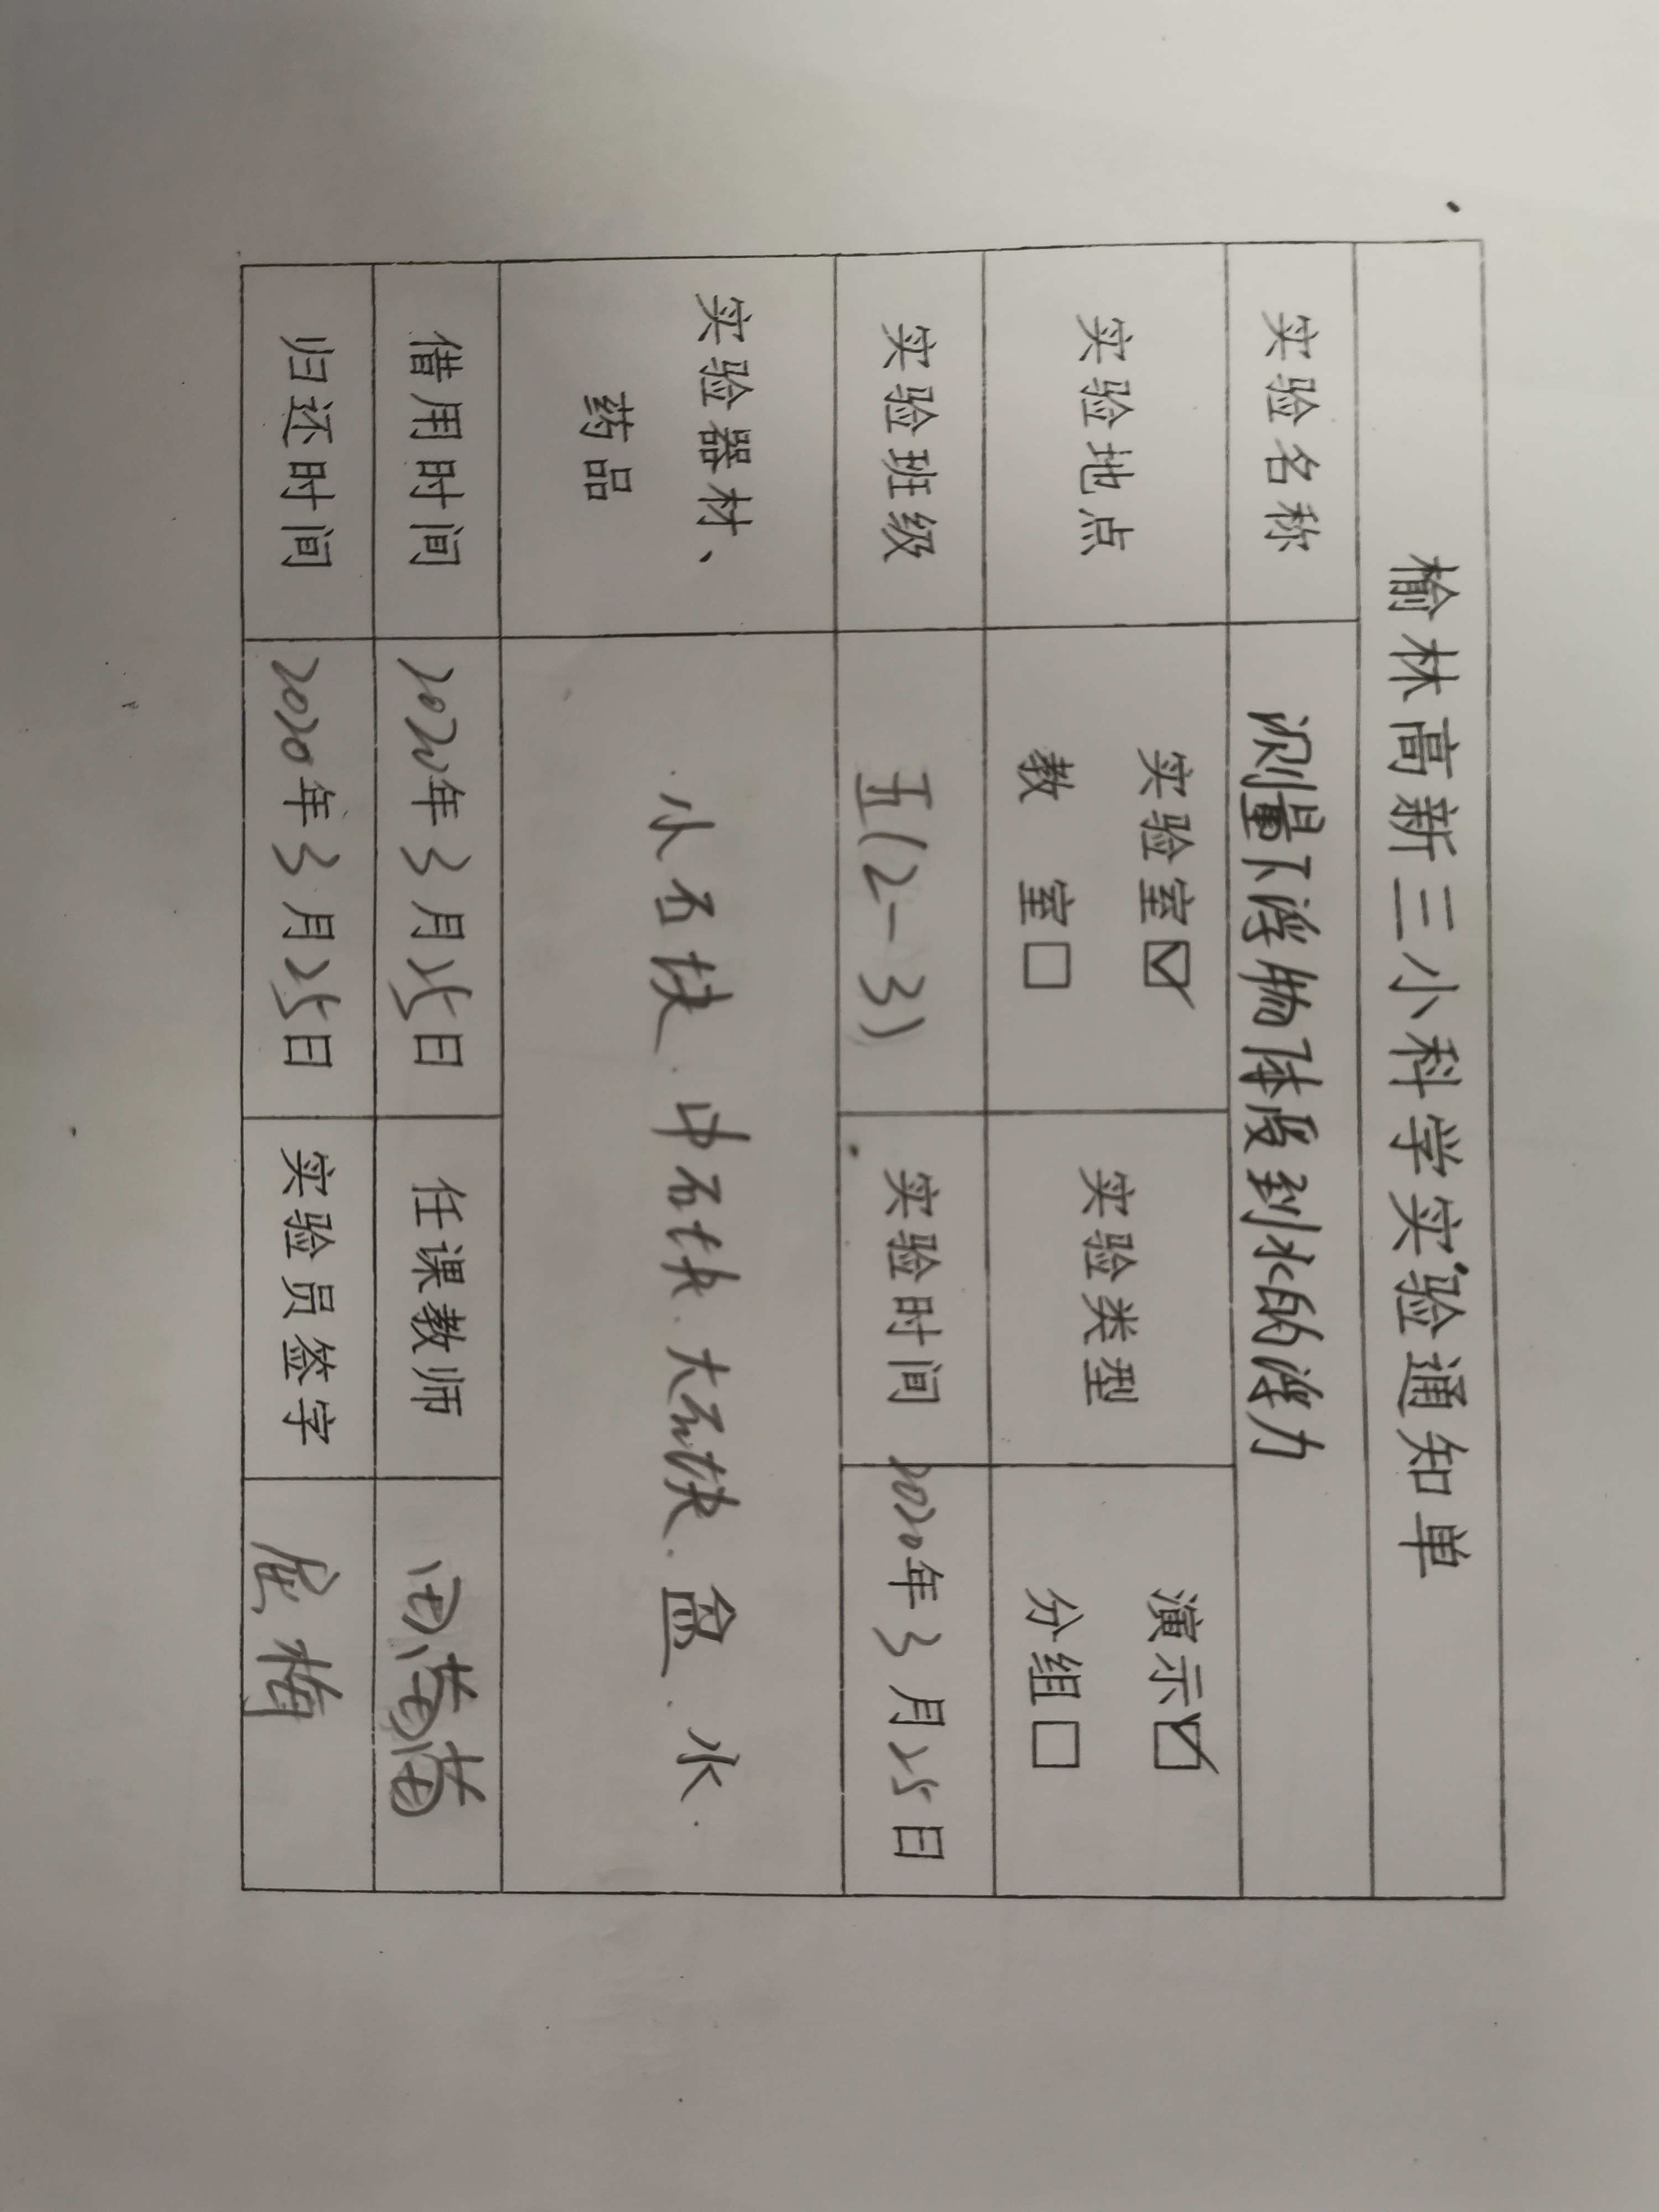 榆林高新三小科学实验通知单
实验名称 测量下浮物体受到水的浮力
实验地点 实验室☑ 教 室□ 实验类型 演示☑ 分组□
实验班级 五(2-3) 实验时间 2020年3月25日
实验器材、药品 小石块.中石块.大石块.盆.水.
借用时间 2020年3月25日 任课教师
归还时间 2020年3月25日 实验员签字 屈梅